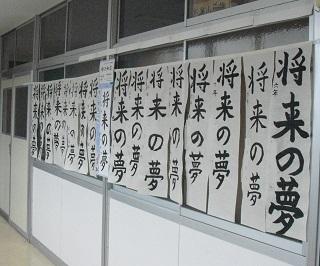 将来の夢
六年
将来の夢
将来の夢
将来の夢
将来の夢
将来の夢
将来の夢
将来の夢
将来の夢
将来の夢
将来の夢
将来の夢
将来の夢
将来の夢